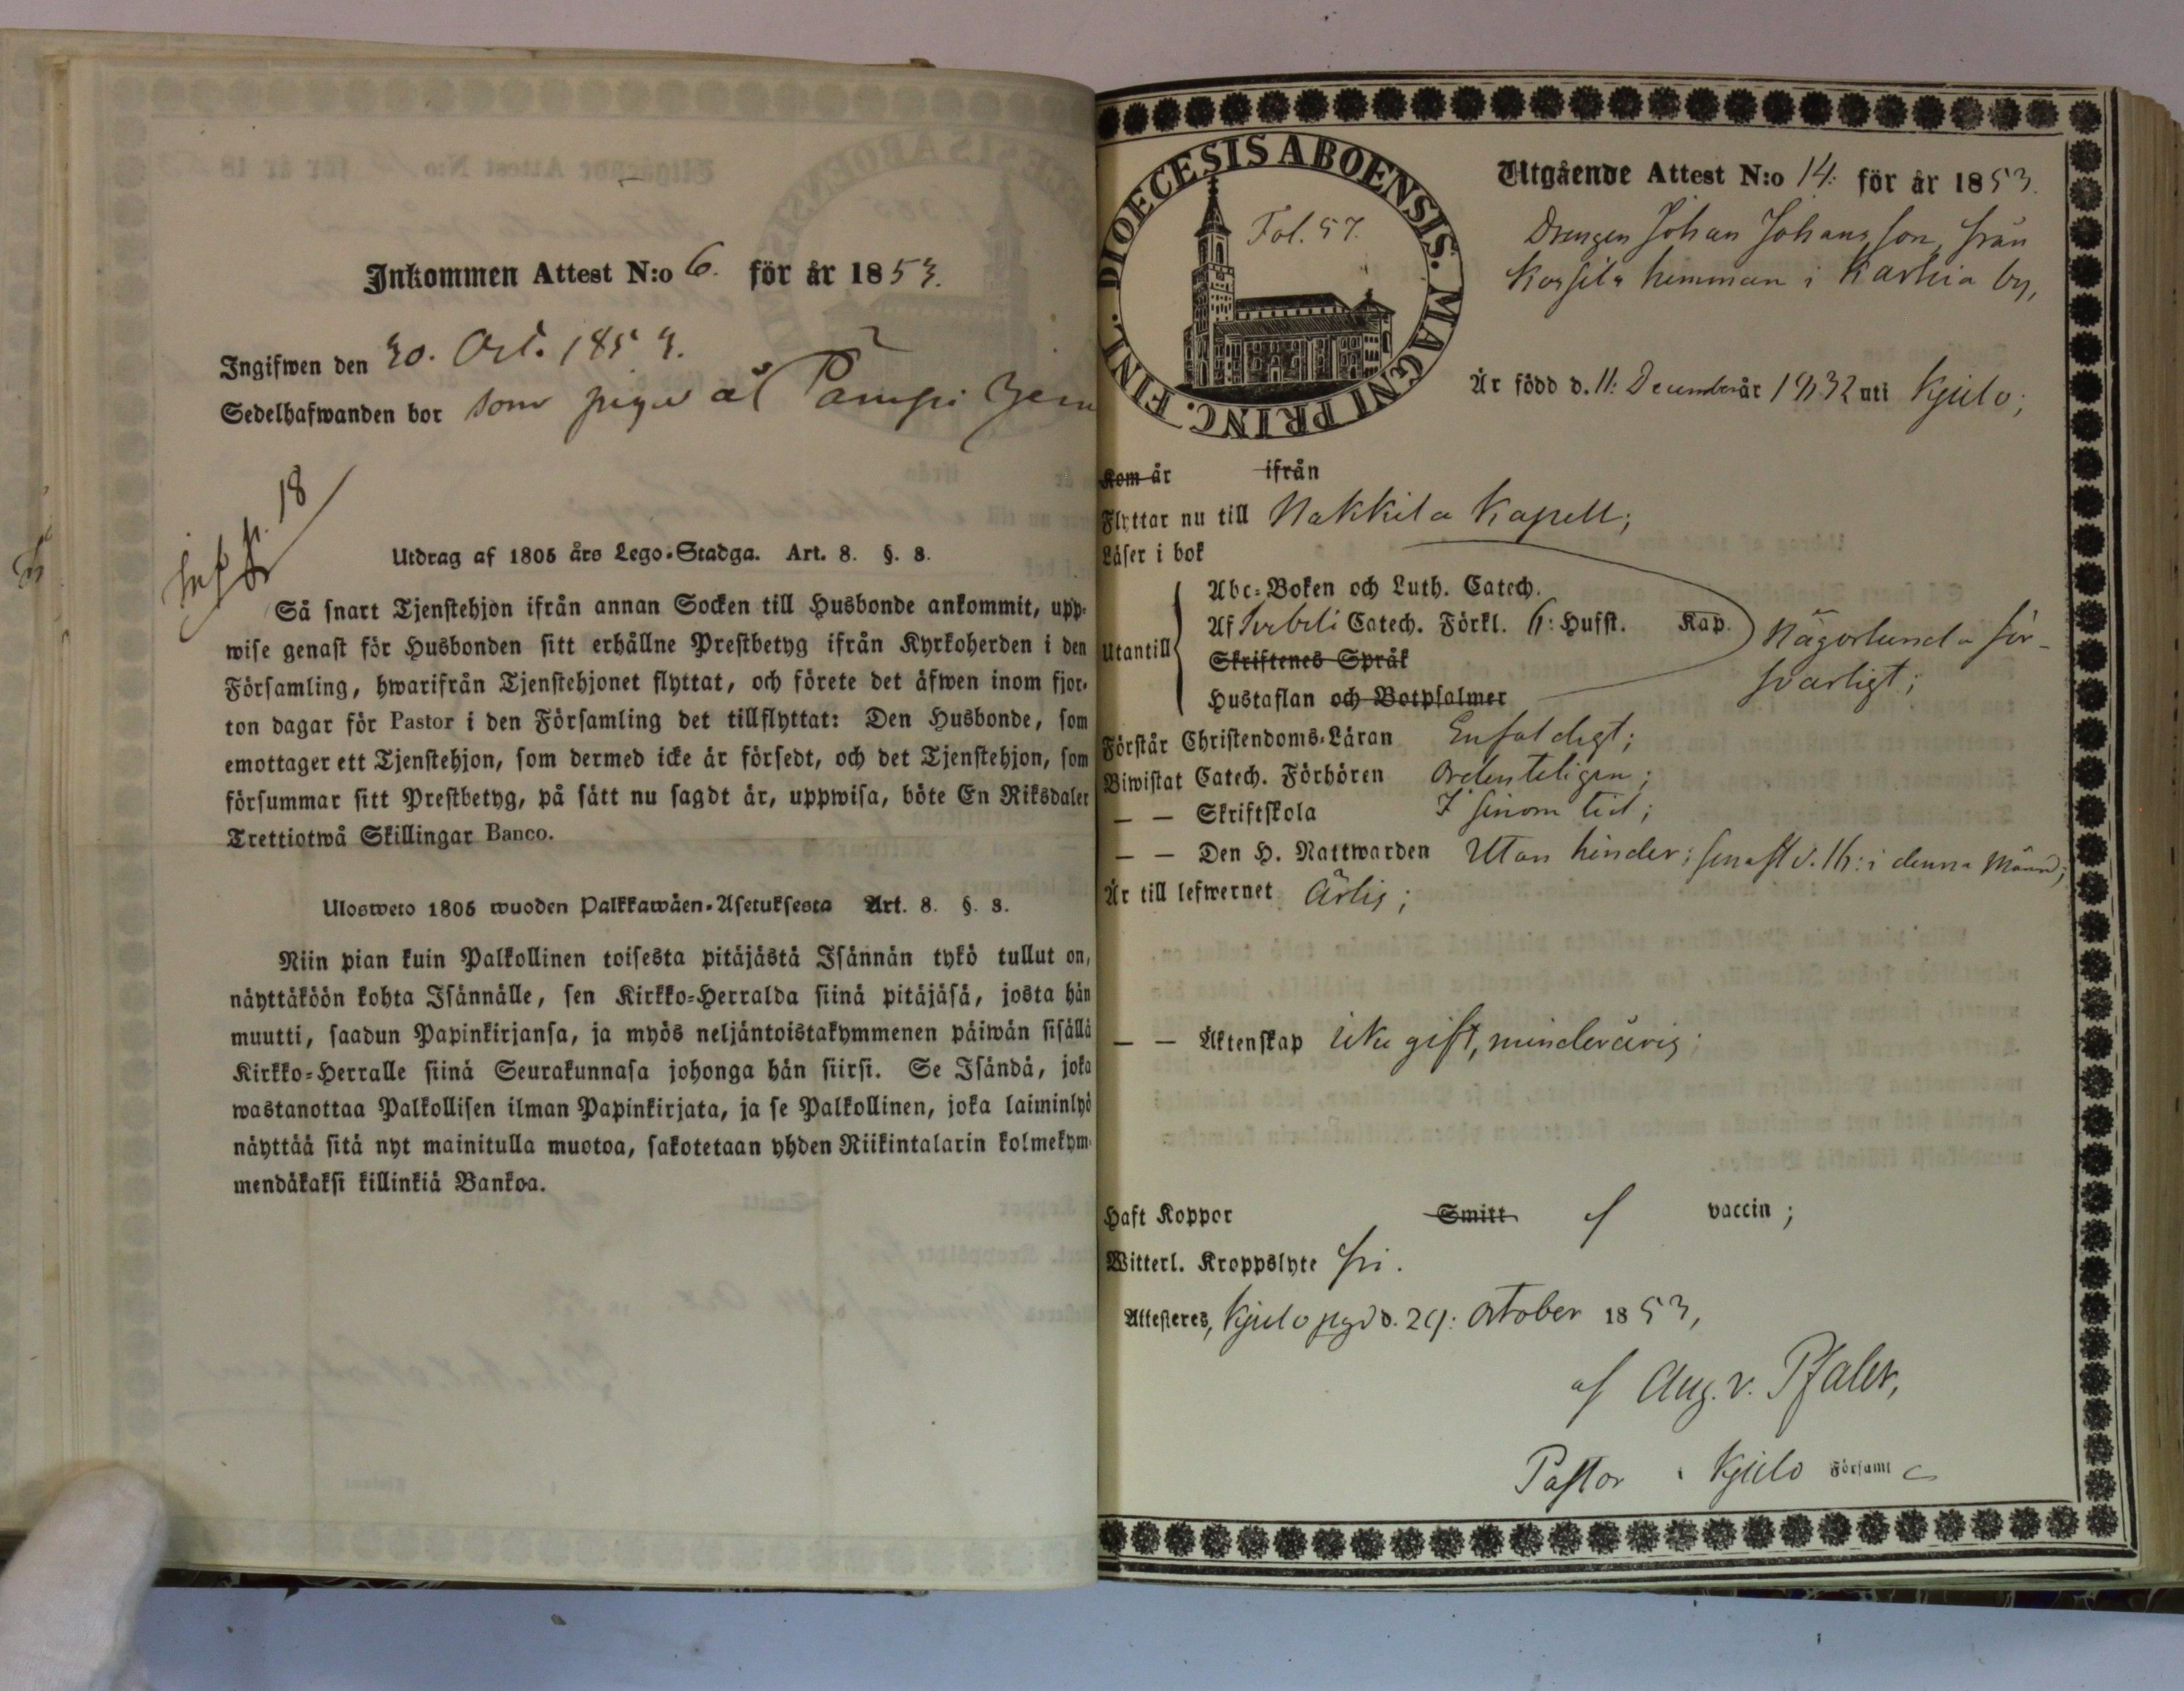 Inkommen Attest N:o 6. för år 1853.
Ingifwen den 30. Oct. 1853.
Sedelhafwanden bor som piga å Pämpi
Insk. p. 18
Utdrag af 1805 års Lego-Stadga. Art. 8. §. 8.
Så snart Tjenstehjon ifrån annan Socken till Husbonde ankommit, upp-
wise genast för Husbonden sitt erhållne Prestbetyg ifrån Kyrkoherden i den
Församling, hwarifrån Tjenstehjonet flyttat, och förete det äfwen inom fjor-
ton dagar för Pastor i den Församling det tillflyttat: Den Husbonde, som
emottager ett Tjenstehjon, som dermed icke är försedt, och det Tjenstehjon, som
försummar sitt Prestbetyg, på sätt nu sagdt är, uppwisa, böte En Riksdaler
Trettiotwå Skillingar Banco.
Ulosweto 1805 wuoden Palkkawäen-Asetuksesta Art. 8. §. 8.
Niin pian kuin Palkollinen toisesta pitäjästä Isännän tykö tullut on,
näyttäköön kohta Isännälle, sen Kirkko-Herralda siinä pitäjäsä, josta hän
muutti, saadun Papinkirjansa, ja myös neljäntoistakymmenen päiwän sisällä
Kirkko-Herralle siinä Seurakunnasa johonga hän siirsi. Se Isändä, joka
wastanottaa Palkollisen ilman Papinkirjata, ja se Palkollinen, joka laiminlyö
näyttää sitä nyt mainitulla muotoa, sakotetaan yhden Riikintalarin kolmekym-
mendäkaksi killinkiä Bankoa.
DIOECESIS ABOENSIS. MAGNI PRINC. FINL.
Fol. 57.
Utgående Attest N:o 14: för år 1853.
Drengen Johan Johansson, från
Korsila hemman i Karhia by,
Är född d. 11: December år 1832 uti Kjulo;
Kom år ifrån
Flyttar nu till Nakkila Kapell;
Läser i bok
Utantill
Abc-Boken och Luth. Catech.
Af Svebeli Catech. Förkl. 6: Hufst. Kap.
Skriftenes Språk
Hustaflan och Botpsalmer
Någorlunda för-
svarligt;
Förstår Christendoms-Läran Enfaldigt;
Biwistat Catech. Förhören Ordenteligen;
— — Skriftskola I sinom tid;
— — Den H. Nattwarden Utan hinder; senast d. 16: i denna Månad;
Är till lefwernet Ärlig;
— — Äktenskap icke gift, minderårig;
Haft Koppor Smitt af vaccin;
Witterl. Kroppslyte fri.
Attesteres, Kjulo pgd d. 29: October 1853,
af Aug. v. Pfaler,
Pastor i Kjulo Församl